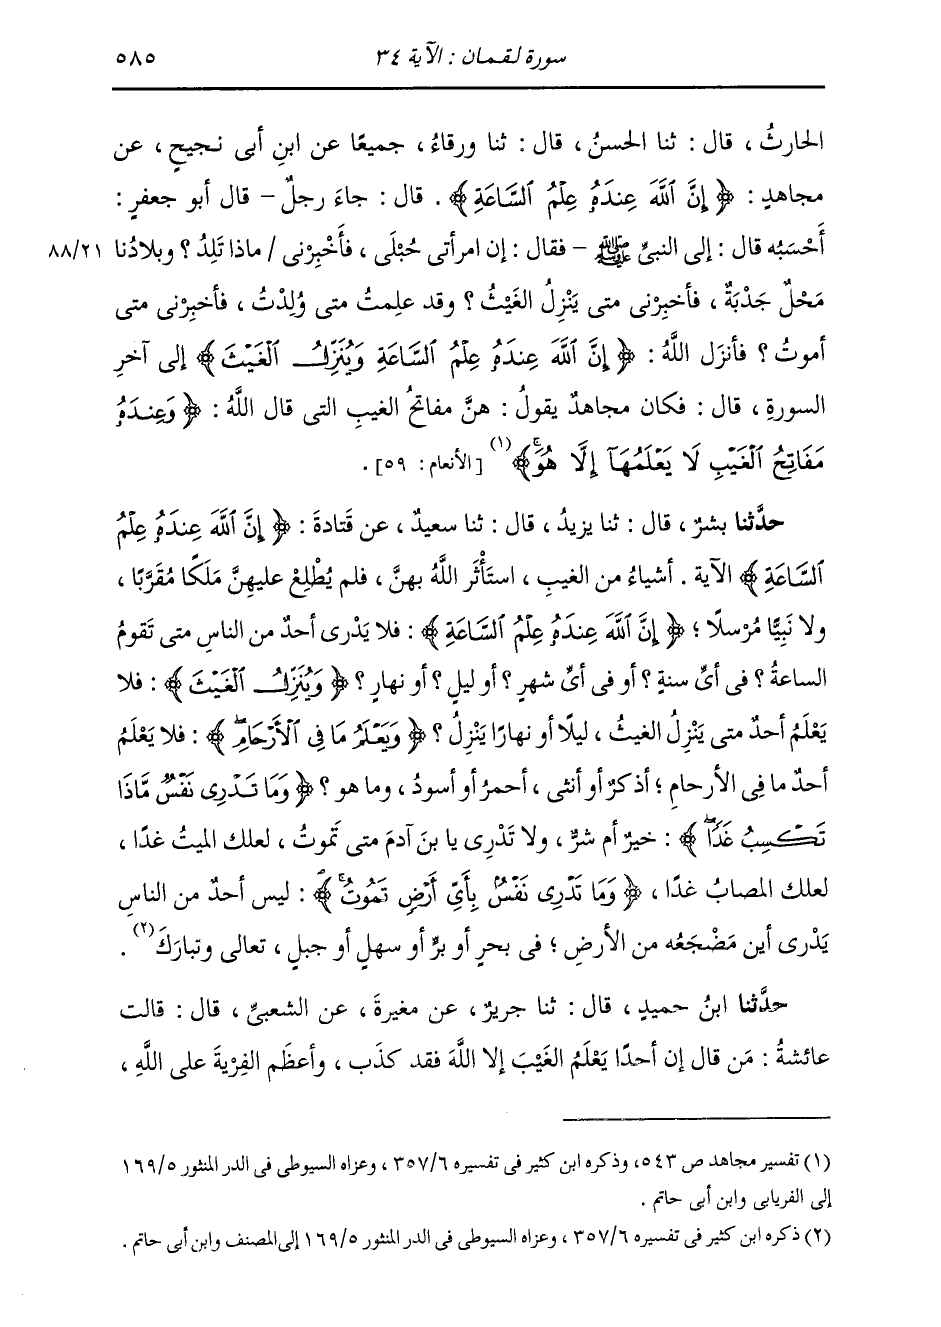 سورة لقمان : الآية ٣٤
٥٨٥
الحارثُ ، قال : ثنا الحسنُ ، قال : ثنا ورقاءُ ، جميعًا عن ابنِ أبى نجيحٍ ، عن
مجاهدٍ : ﴿ إِنَّ ٱللَّهَ عِندَهُۥ عِلْمُ ٱلسَّاعَةِ ﴾ . قال : جاءَ رجلٌ - قال أبو جعفرٍ :
أَحْسَبُه قال : إلى النبىِّ ﷺ - فقال : إن امرأتى حُبْلَى ، فأَخْبِرْنى / ماذا تَلِدُ ؟ وبلادُنا ٨٨/٢١
مَحْلٌ جَدْبَةٌ ، فأخبِرْنى متى يَنْزِلُ الغَيْثُ ؟ وقد علِمتُ متى وُلِدْتُ ، فأخبِرْنى متى
أموتُ ؟ فأنزَل اللَّهُ : ﴿ إِنَّ ٱللَّهَ عِندَهُۥ عِلْمُ ٱلسَّاعَةِ وَيُنَزِّلُ ٱلْغَيْثَ ﴾ إلى آخرِ
السورةِ ، قال : فكان مجاهدٌ يقولُ : هنَّ مفاتحُ الغيبِ التى قال اللَّهُ : ﴿ وَعِندَهُۥ
مَفَاتِحُ ٱلْغَيْبِ لَا يَعْلَمُهَآ إِلَّا هُوَۚ ﴾(١) [الأنعام : ٥٩] .
حدَّثنا بشرٌ ، قال : ثنا يزيدُ ، قال : ثنا سعيدٌ ، عن قَتادةَ : ﴿ إِنَّ ٱللَّهَ عِندَهُۥ عِلْمُ
ٱلسَّاعَةِ ﴾ الآية . أشياءُ من الغيبِ ، استَأْثَر اللَّهُ بهنَّ ، فلم يُطْلِعْ عليهنَّ مَلَكًا مُقَرَّبًا ،
ولا نَبِيًّا مُرْسلًا ؛ ﴿ إِنَّ ٱللَّهَ عِندَهُۥ عِلْمُ ٱلسَّاعَةِ ﴾ : فلا يَدْرى أحدٌ من الناسِ متى تَقومُ
الساعةُ ؟ فى أىِّ سنةٍ ؟ أو فى أىِّ شهرٍ ؟ أو ليلٍ ؟ أو نهارٍ ؟ ﴿ وَيُنَزِّلُ ٱلْغَيْثَ ﴾ : فلا
يَعْلَمُ أحدٌ متى يَنْزِلُ الغيثُ ، ليلًا أو نهارًا يَنْزِلُ ؟ ﴿ وَيَعْلَمُ مَا فِى ٱلْأَرْحَامِۖ ﴾ : فلا يَعْلَمُ
أحدٌ ما فِى الأرحامِ ؛ أذكرٌ أو أنثى ، أحمرُ أو أسودُ ، وما هو ؟ ﴿ وَمَا تَدْرِى نَفْسٌ مَّاذَا
تَكْسِبُ غَدًاۖ ﴾ : خيرٌ أم شرٌّ ، ولا تَدْرِى يا بنَ آدمَ متى تَموتُ ، لعلك الميتُ غدًا ،
لعلك المصابُ غدًا ، ﴿ وَمَا تَدْرِى نَفْسٌۢ بِأَىِّ أَرْضٍ تَمُوتُۚ ﴾ : ليس أحدٌ من الناسِ
يَدْرى أين مَضْجَعُه من الأرضِ ؛ فى بحرٍ أو برٍّ أو سهلٍ أو جبلٍ ، تعالى وتبارَكَ(٢) .
حدَّثنا ابنُ حميدٍ ، قال : ثنا جريرٌ ، عن مغيرةَ ، عن الشعبىِّ ، قال : قالت
عائشةُ : مَن قال إن أحدًا يَعْلَمُ الغَيْبَ إلا اللَّهَ فقد كذَب ، وأعظَم الفِرْيةَ على اللَّهِ ،
(١) تفسير مجاهد ص ٥٤٣، وذكره ابن كثير فى تفسيره ٣٥٧/٦ ، وعزاه السيوطى فى الدر المنثور ١٦٩/٥
إلى الفريابى وابن أبى حاتم .
(٢) ذكره ابن كثير فى تفسيره ٣٥٧/٦ ، وعزاه السيوطى فى الدر المنثور ١٦٩/٥ إلى المصنف وابن أبى حاتم .